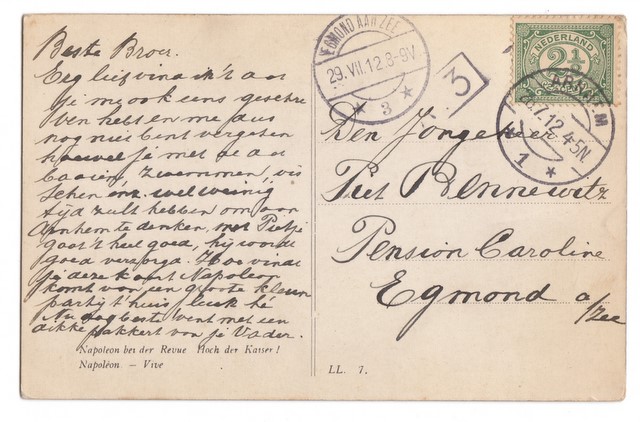 Beste Broer.
Erg lief vind ik 't dat
je my ook eens geschre
ven hebt en me dus
nog niet bent vergeten
hoewel je met al dat
baaien, zwemmen, vis
schen enz. wel weinig
tijd zult hebben om aan
Arnhem te denken, met Pietje
gaat 't heel goed, hij wordt
goed verzorgd. Hoe vindt
je deze kaart Napoleon
komt van een groote kleuren
partij t'huis, leuk hé
Nu dag beste vent met een
dikke pakkert van je Vader.
Napoleon bei der Revue Hoch der Kaiser!
Napoléon – Vive
LL. 7.
EGMOND AAN ZEE
29.VII.12.8-9V
3
3
NEDERLAND
2½
ARNHEM
7.12.4-5N.
1
Den Jongeheer
Piet Bennewitz
Pension Caroline
Egmond a/zee